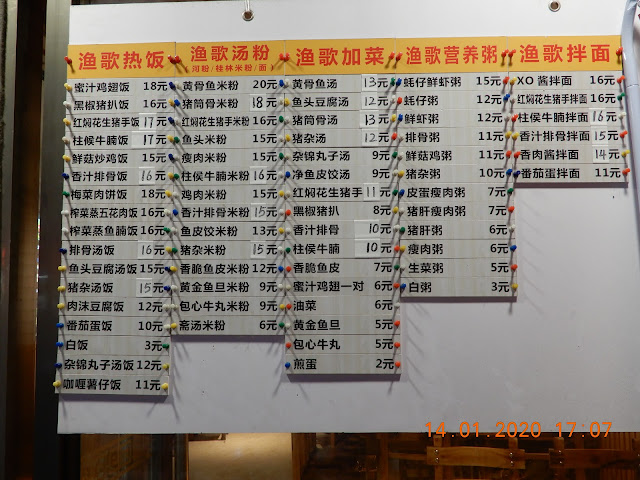 渔歌热饭
蜜汁鸡翅饭 18元
黑椒猪扒饭 16元
红焖花生猪手饭 17元
柱侯牛腩饭 17元
鲜菇炒鸡饭 15元
香汁排骨饭 16元
梅菜肉饼饭 18元
榨菜蒸五花肉饭 16元
榨菜蒸鱼腩饭 16元
排骨汤饭 16元
鱼头豆腐汤饭 15元
猪杂汤饭 15元
肉沫豆腐饭 12元
番茄蛋饭 10元
白饭 3元
杂锦丸子汤饭 12元
咖喱薯仔饭 11元
渔歌汤粉
(河粉/桂林米粉/面)
黄骨鱼米粉 20元
猪筒骨米粉 18元
红焖花生猪手米粉 16元
鱼头米粉 15元
瘦肉米粉 15元
柱侯牛腩米粉 16元
鸡肉米粉 15元
香汁排骨米粉 15元
鱼皮饺米粉 13元
猪杂米粉 15元
香脆鱼皮米粉 12元
黄金鱼旦米粉 9元
包心牛丸米粉 9元
斋汤米粉 6元
渔歌加菜
黄骨鱼汤 13元
鱼头豆腐汤 12元
猪筒骨汤 13元
猪杂汤 12元
杂锦丸子汤 9元
净鱼皮饺汤 9元
红焖花生猪手 11元
黑椒猪扒 8元
香汁排骨 10元
柱侯牛腩 10元
香脆鱼皮 7元
蜜汁鸡翅一对 6元
油菜 6元
黄金鱼旦 5元
包心牛丸 5元
煎蛋 2元
渔歌营养粥
蚝仔鲜虾粥 15元
蚝仔粥 12元
鲜虾粥 12元
排骨粥 11元
鲜菇鸡粥 11元
猪杂粥 10元
皮蛋瘦肉粥 7元
猪肝瘦肉粥 7元
猪肝粥 6元
瘦肉粥 6元
生菜粥 5元
白粥 3元
渔歌拌面
XO 酱拌面 16元
红焖花生猪手拌面 16元
柱侯牛腩拌面 16元
香汁排骨拌面 15元
香肉酱拌面 14元
番茄蛋拌面 11元
14.01.2020 17:07